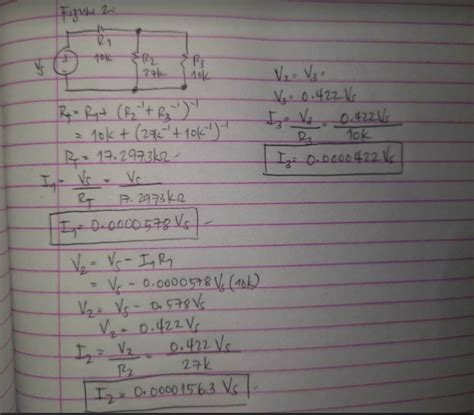 Figure 2:
R₁
10k
Vs
R₂
27k
R₃
10k
R_T = R₁ + (R₂⁻¹ + R₃⁻¹)⁻¹
= 10k + (27k⁻¹ + 10k⁻¹)⁻¹
R_T = 17.2973kΩ
I₁ = Vs/R_T = Vs/17.2973kΩ
I₁ = 0.0000578 Vs
V₂ = Vs - I₁R₁
= Vs - 0.0000578 Vs (10k)
V₂ = Vs - 0.578 Vs
V₂ = 0.422 Vs
I₂ = V₂/R₂ = 0.422 Vs/27k
I₂ = 0.00001563 Vs
V₂ = V₃
V₃ = 0.422 Vs
I₃ = V₃/R₃ = 0.422 Vs/10k
I₃ = 0.0000422 Vs